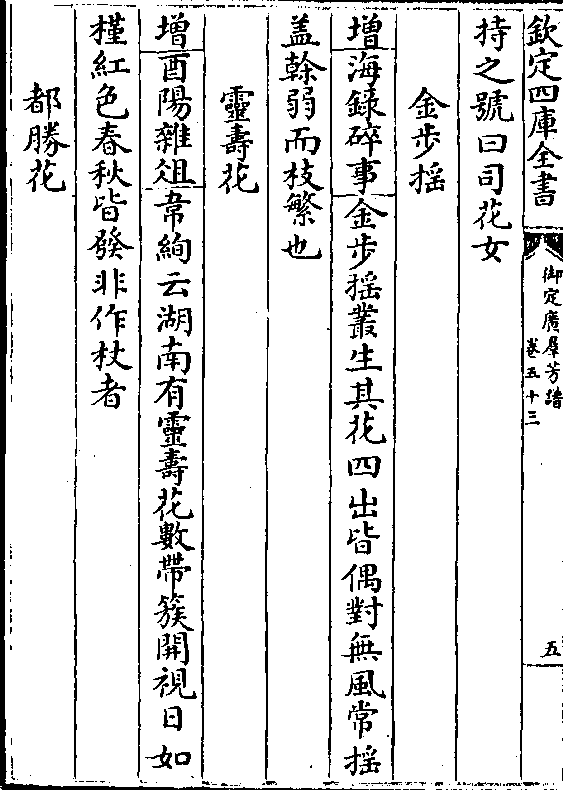 欽定四庫全書
御定廣羣芳譜
卷五十三
五
持之號曰司花女
金步揺
增海録碎事金步揺叢生其花四出皆偶對無風常揺
盖榦弱而枝繁也
靈壽花
增酉陽雜俎韋絢云湖南有靈壽花數帶簇開視日如
槿紅色春秋皆發非作杖者
都勝花